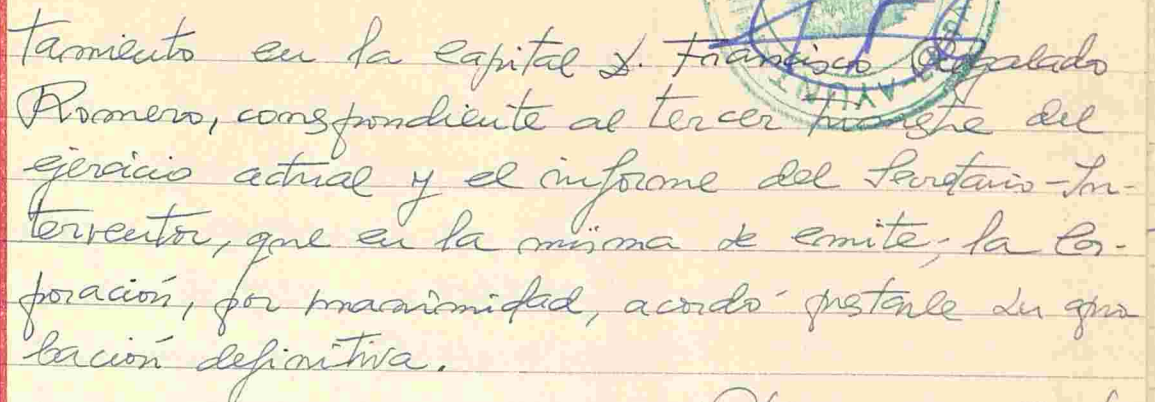 tamiento en la capital D. Francisco Regalado
Romero, correspondiente al tercer trimestre del
ejercicio actual y el informe del Secretario-In-
terventor, que en la misma se emite, la Cor-
poración, por unanimidad, acordó prestarle su apro
bación definitiva.
AYUNT